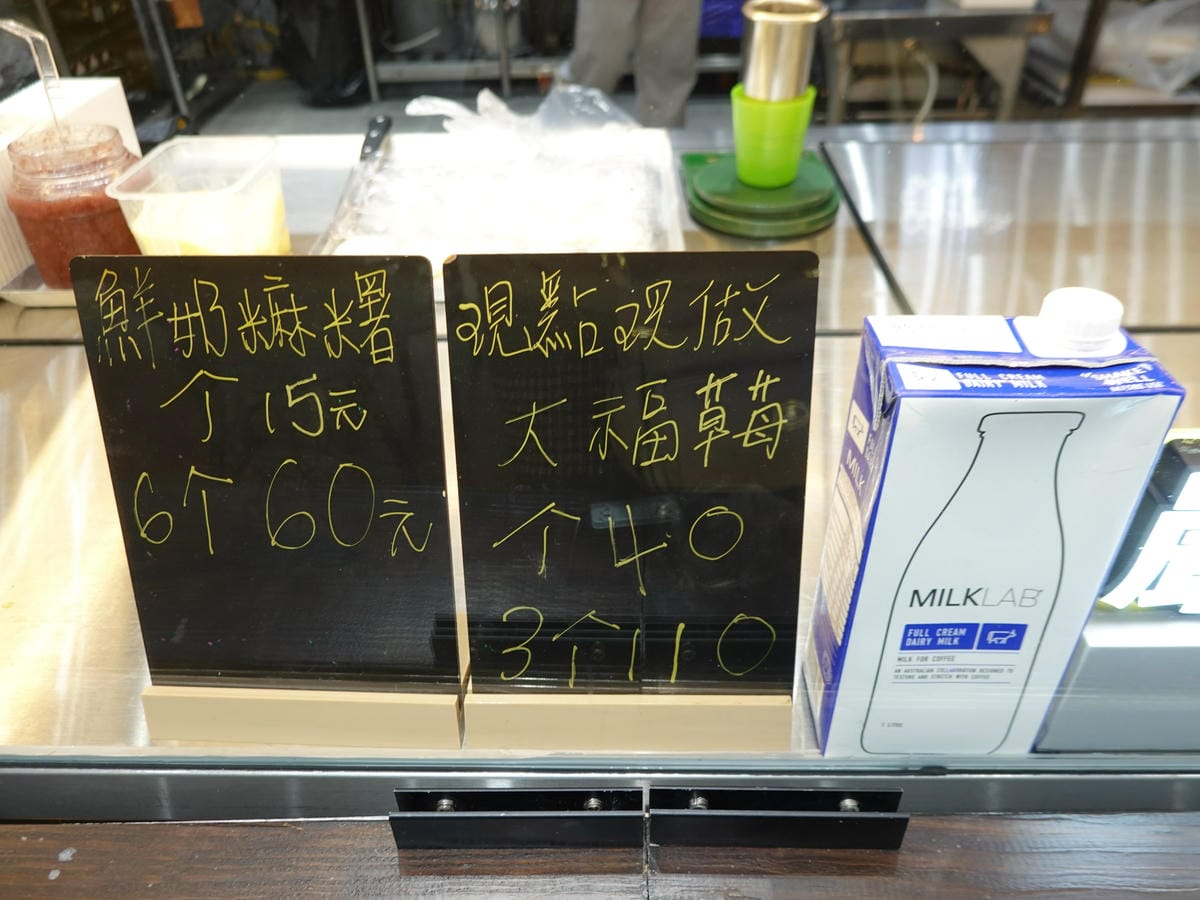 鮮奶糜糬
个 15元
6个 60元
現點現做
大福草莓
个 40
3个110
FULL CREAM
DAIRY MILK
MILK
MILKLAB
FULL CREAM
DAIRY MILK
MILK FOR COFFEE
AN AUSTRALIAN COLLABORATION DESIGNED TO
TEXTURE AND STRETCH WITH COFFEE
1 LITRE